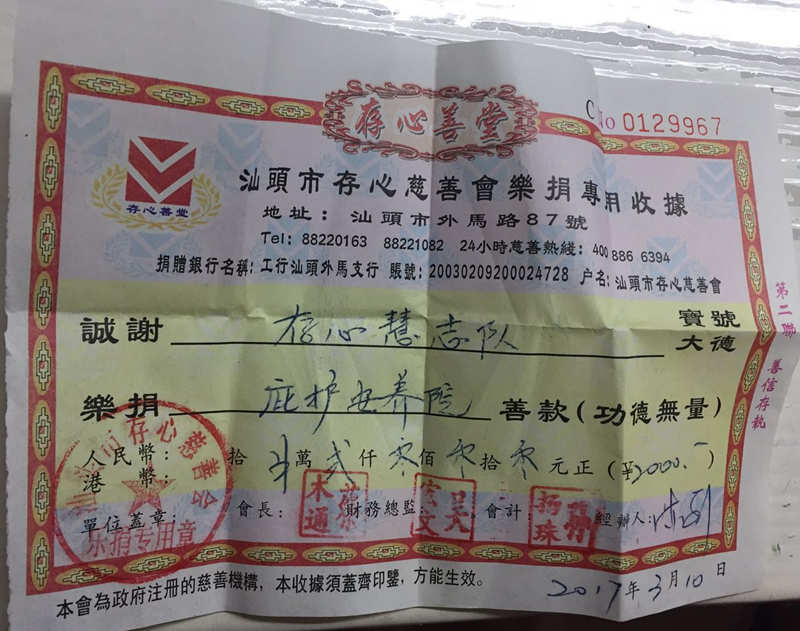 存心善堂
No 0129967
存心善堂
汕頭市存心慈善會樂捐專用收據
地址：汕頭市外馬路87號
Tel: 88220163 88221082 24小時慈善熱綫: 400 886 6394
捐贈銀行名稱: 工行汕頭外馬支行 賬號: 2003020920024728 户名: 汕頭市存心慈善會
誠謝 存心慧志队 寶號
大德
樂捐 庇护安养院 善款(功德無量)
人民幣: 拾 萬 贰 仟 零 佰 零 拾 零 元正 (¥2000.-)
港幣:
單位蓋章: 會長: 財務總監: 會計: 經辦人:
存心慈善会
乐捐专用章
2017年3月10日
本會為政府注册的慈善機構，本收據須蓋齊印鑒，方能生效。
第二聯 善信存執